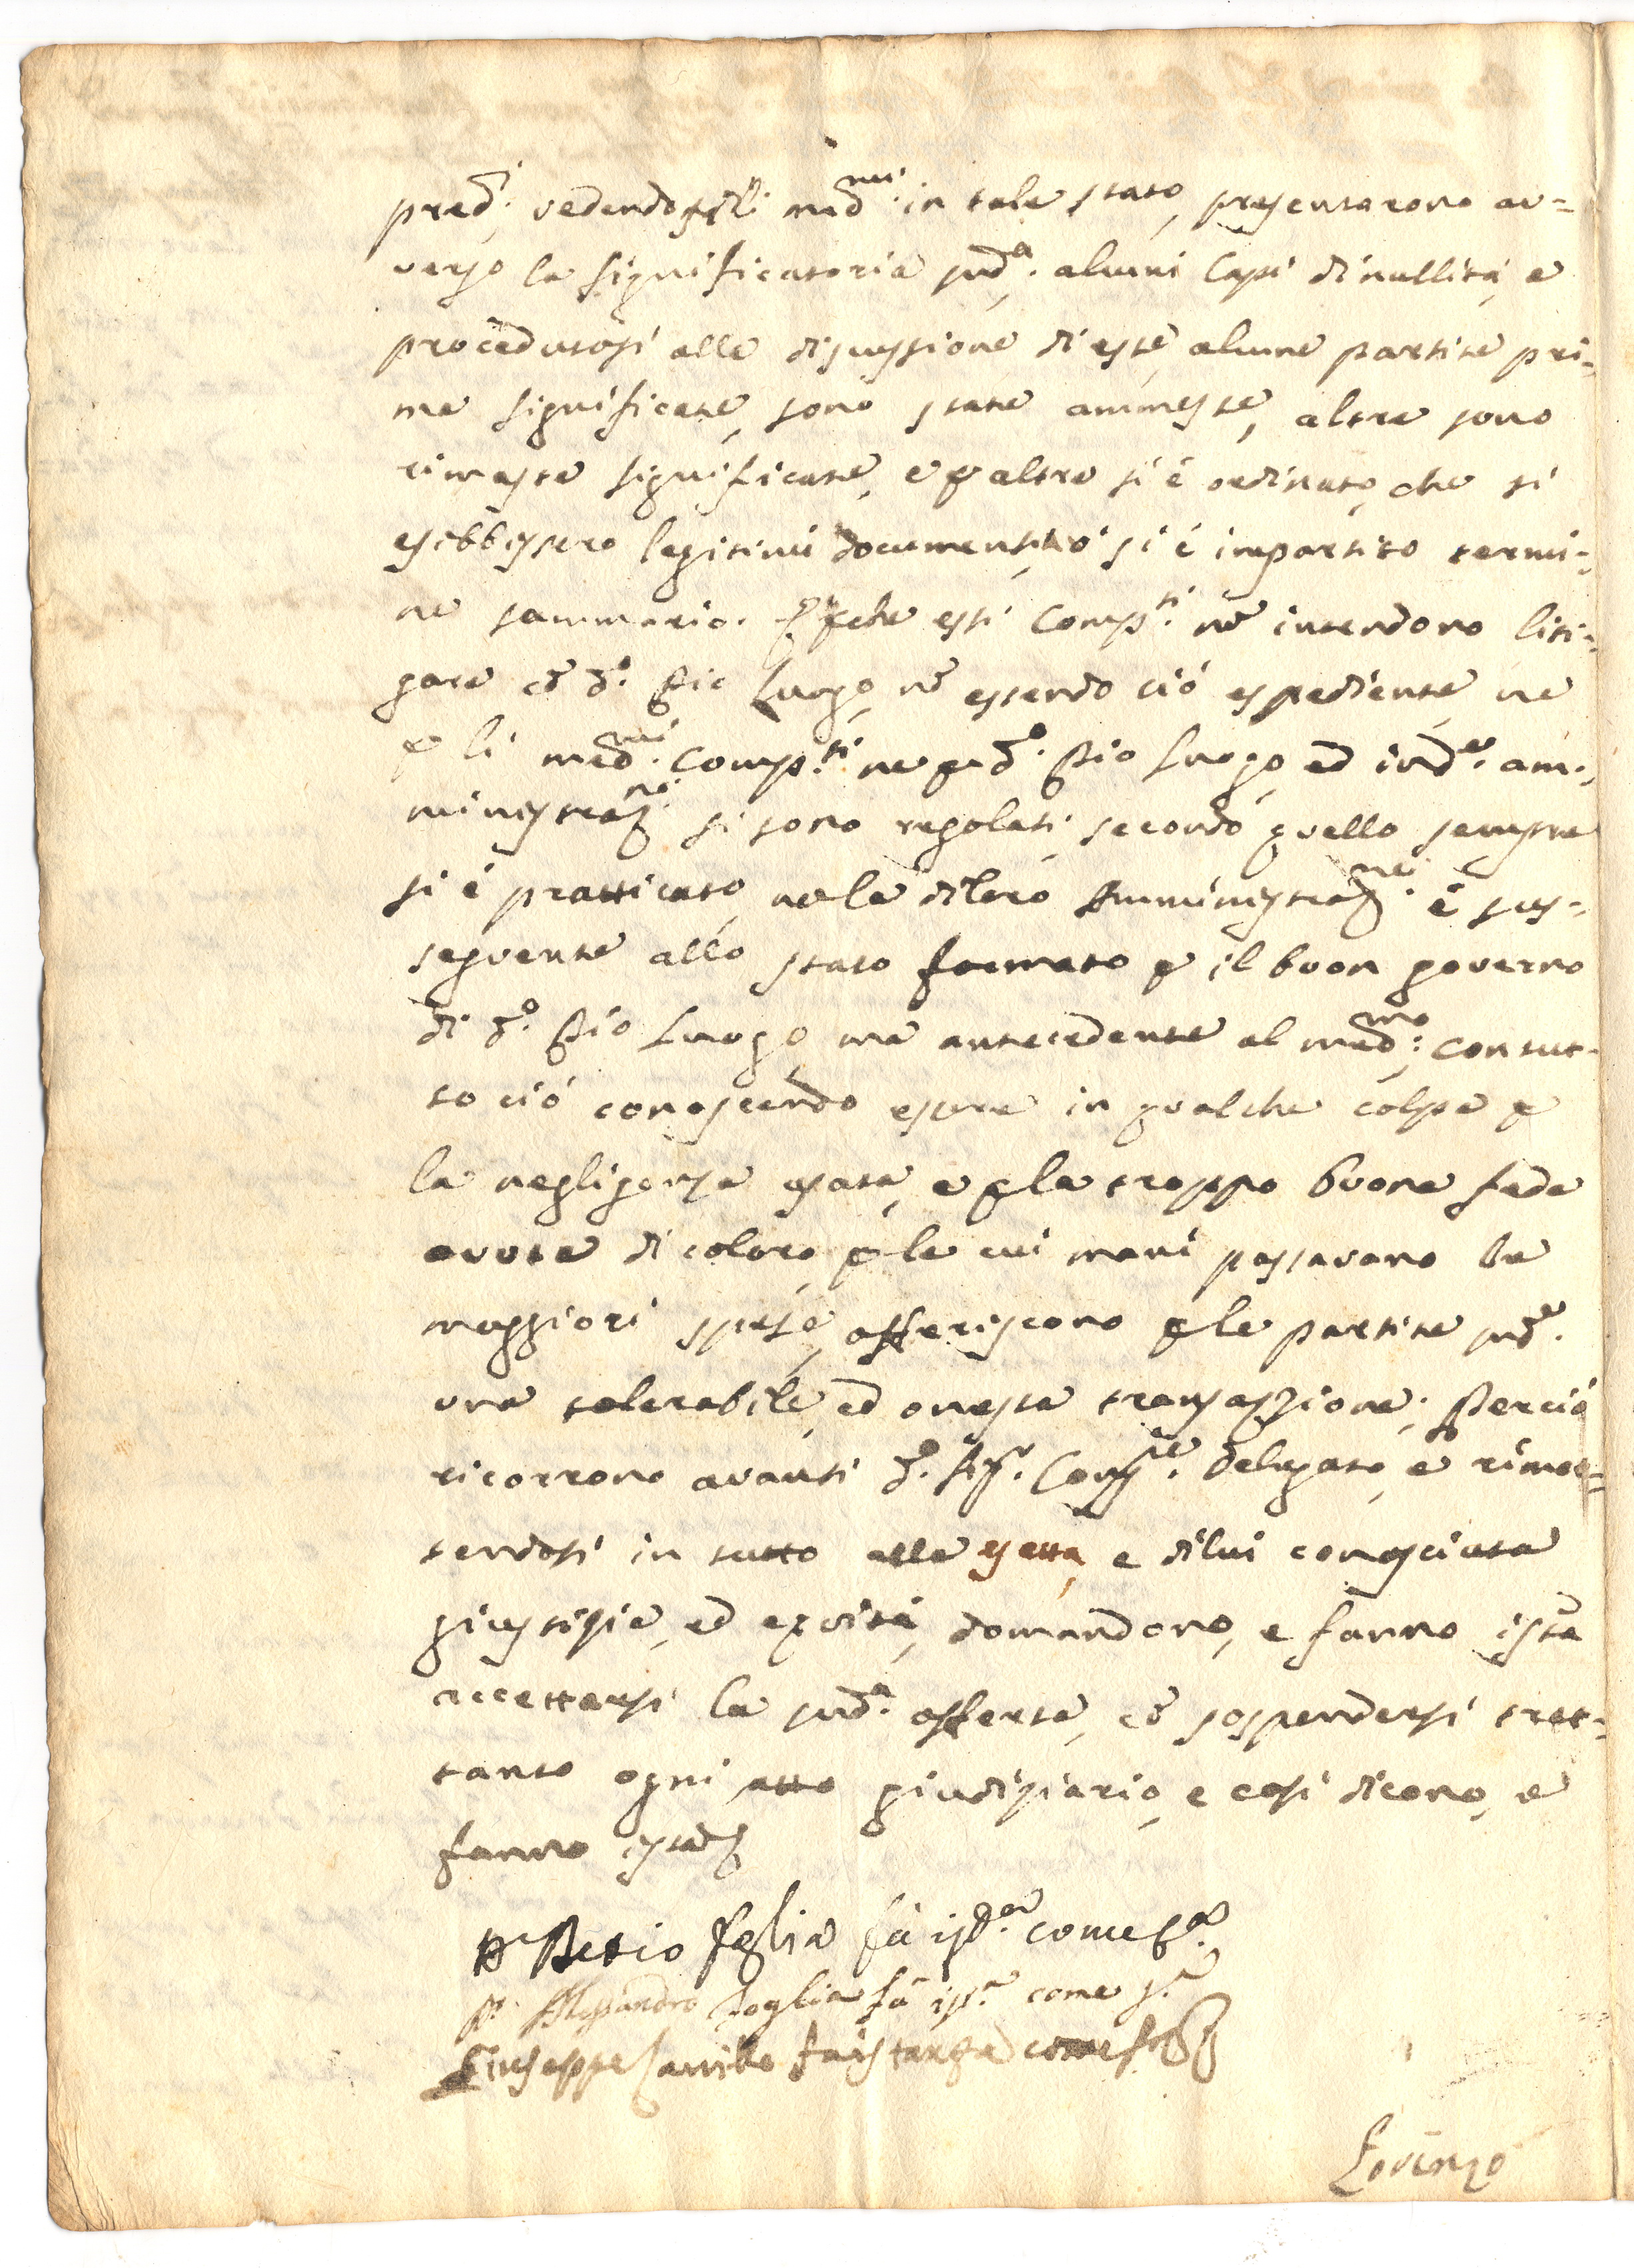 pred.i, vedendosi li med.mi in tale stato, presentarono av=
verso la significatoria sud.a alcuni Capi di nullità, e
procedutosi alla discussione di esse, alcune partite pri=
ma significate, sono state ammesse, altre sono
rimaste significate, e p altre si è ordinato, che si
esibbissero legitimi documenti, si è impartito termi=
ne sammario. Pche essi Comp.ti nõ intendono liti=
gare cõ d.o Pio Luogo, nõ essendo ciò espediente, ne
p li med.mi Comp.ti ne p d.o Pio Luogo, ed in d.a am=
ministraz.ne si sono regolati, secondo quello sempre
si è pratticato, ne la di loro Amministraz.ne è sus=
seguente allo stato formato p il buon governo
di d.o Pio Luogo, ma antecedente al med.mo; con tut=
to ciò conoscendo essere in qualche colpa p
la negligenza usata, e p la troppo buona fede
avuta di coloro, p le cui mani passavano le
maggiori spese, offeriscono p le partite sud.e
una tolerabile, ed onesta transazzione; Perciò
ricorrono avanti d.o Sig.r Cons.re Delegato, e rimet=
tendosi in tutto alla esatta, e di lui conosciuta
giustizia, ed equità, domandono, e fanno ista
accettarsi la sud.a offerta, cõ sospendersi trat=
tanto ogni atto giudiziario, e così dicono, e
fanno ista
D.r Betio foglia fà ist.a come s.a
D. Alessandro foglia fà ist.a come s.a
Giuseppe fa istanza come sop.a
Lorenzo